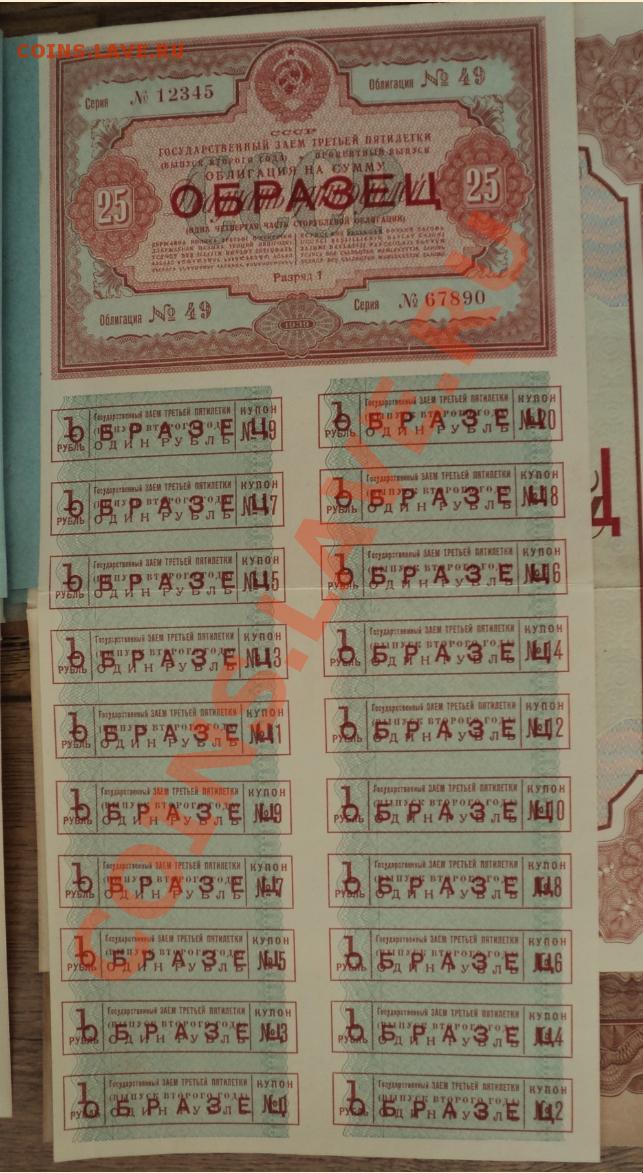 COINS.LAVE.RU
Серия № 12345
Облигация № 49
СССР
ГОСУДАРСТВЕННЫЙ ЗАЕМ ТРЕТЬЕЙ ПЯТИЛЕТКИ
(ВЫПУСК ВТОРОГО ГОДА) • ПРОЦЕНТНЫЙ ВЫПУСК
ОБЛИГАЦИЯ НА СУММУ
25 ОБРАЗЕЦ 25
(ОДНА ЧЕТВЕРТАЯ ЧАСТЬ СТОРУБЛЕВОЙ ОБЛИГАЦИИ)
Разряд 1
Облигация № 49
Серия № 67890
1939
1 РУБЛЬ Государственный ЗАЕМ ТРЕТЬЕЙ ПЯТИЛЕТКИ КУПОН
(ВЫПУСК ВТОРОГО ГОДА)
ОДИН РУБЛЬ №19
ОБРАЗЕЦ
1 РУБЛЬ Государственный ЗАЕМ ТРЕТЬЕЙ ПЯТИЛЕТКИ КУПОН
(ВЫПУСК ВТОРОГО ГОДА)
ОДИН РУБЛЬ №20
ОБРАЗЕЦ
1 РУБЛЬ Государственный ЗАЕМ ТРЕТЬЕЙ ПЯТИЛЕТКИ КУПОН
(ВЫПУСК ВТОРОГО ГОДА)
ОДИН РУБЛЬ №17
ОБРАЗЕЦ
1 РУБЛЬ Государственный ЗАЕМ ТРЕТЬЕЙ ПЯТИЛЕТКИ КУПОН
(ВЫПУСК ВТОРОГО ГОДА)
ОДИН РУБЛЬ №18
ОБРАЗЕЦ
1 РУБЛЬ Государственный ЗАЕМ ТРЕТЬЕЙ ПЯТИЛЕТКИ КУПОН
(ВЫПУСК ВТОРОГО ГОДА)
ОДИН РУБЛЬ №15
ОБРАЗЕЦ
1 РУБЛЬ Государственный ЗАЕМ ТРЕТЬЕЙ ПЯТИЛЕТКИ КУПОН
(ВЫПУСК ВТОРОГО ГОДА)
ОДИН РУБЛЬ №16
ОБРАЗЕЦ
1 РУБЛЬ Государственный ЗАЕМ ТРЕТЬЕЙ ПЯТИЛЕТКИ КУПОН
(ВЫПУСК ВТОРОГО ГОДА)
ОДИН РУБЛЬ №13
ОБРАЗЕЦ
1 РУБЛЬ Государственный ЗАЕМ ТРЕТЬЕЙ ПЯТИЛЕТКИ КУПОН
(ВЫПУСК ВТОРОГО ГОДА)
ОДИН РУБЛЬ №14
ОБРАЗЕЦ
1 РУБЛЬ Государственный ЗАЕМ ТРЕТЬЕЙ ПЯТИЛЕТКИ КУПОН
(ВЫПУСК ВТОРОГО ГОДА)
ОДИН РУБЛЬ №11
ОБРАЗЕЦ
1 РУБЛЬ Государственный ЗАЕМ ТРЕТЬЕЙ ПЯТИЛЕТКИ КУПОН
(ВЫПУСК ВТОРОГО ГОДА)
ОДИН РУБЛЬ №12
ОБРАЗЕЦ
1 РУБЛЬ Государственный ЗАЕМ ТРЕТЬЕЙ ПЯТИЛЕТКИ КУПОН
(ВЫПУСК ВТОРОГО ГОДА)
ОДИН РУБЛЬ №9
ОБРАЗЕЦ
1 РУБЛЬ Государственный ЗАЕМ ТРЕТЬЕЙ ПЯТИЛЕТКИ КУПОН
(ВЫПУСК ВТОРОГО ГОДА)
ОДИН РУБЛЬ №10
ОБРАЗЕЦ
1 РУБЛЬ Государственный ЗАЕМ ТРЕТЬЕЙ ПЯТИЛЕТКИ КУПОН
(ВЫПУСК ВТОРОГО ГОДА)
ОДИН РУБЛЬ №7
ОБРАЗЕЦ
1 РУБЛЬ Государственный ЗАЕМ ТРЕТЬЕЙ ПЯТИЛЕТКИ КУПОН
(ВЫПУСК ВТОРОГО ГОДА)
ОДИН РУБЛЬ №8
ОБРАЗЕЦ
1 РУБЛЬ Государственный ЗАЕМ ТРЕТЬЕЙ ПЯТИЛЕТКИ КУПОН
(ВЫПУСК ВТОРОГО ГОДА)
ОДИН РУБЛЬ №5
ОБРАЗЕЦ
1 РУБЛЬ Государственный ЗАЕМ ТРЕТЬЕЙ ПЯТИЛЕТКИ КУПОН
(ВЫПУСК ВТОРОГО ГОДА)
ОДИН РУБЛЬ №6
ОБРАЗЕЦ
1 РУБЛЬ Государственный ЗАЕМ ТРЕТЬЕЙ ПЯТИЛЕТКИ КУПОН
(ВЫПУСК ВТОРОГО ГОДА)
ОДИН РУБЛЬ №3
ОБРАЗЕЦ
1 РУБЛЬ Государственный ЗАЕМ ТРЕТЬЕЙ ПЯТИЛЕТКИ КУПОН
(ВЫПУСК ВТОРОГО ГОДА)
ОДИН РУБЛЬ №4
ОБРАЗЕЦ
1 РУБЛЬ Государственный ЗАЕМ ТРЕТЬЕЙ ПЯТИЛЕТКИ КУПОН
(ВЫПУСК ВТОРОГО ГОДА)
ОДИН РУБЛЬ №1
ОБРАЗЕЦ
1 РУБЛЬ Государственный ЗАЕМ ТРЕТЬЕЙ ПЯТИЛЕТКИ КУПОН
(ВЫПУСК ВТОРОГО ГОДА)
ОДИН РУБЛЬ №2
ОБРАЗЕЦ
COINS.LAVE.RU